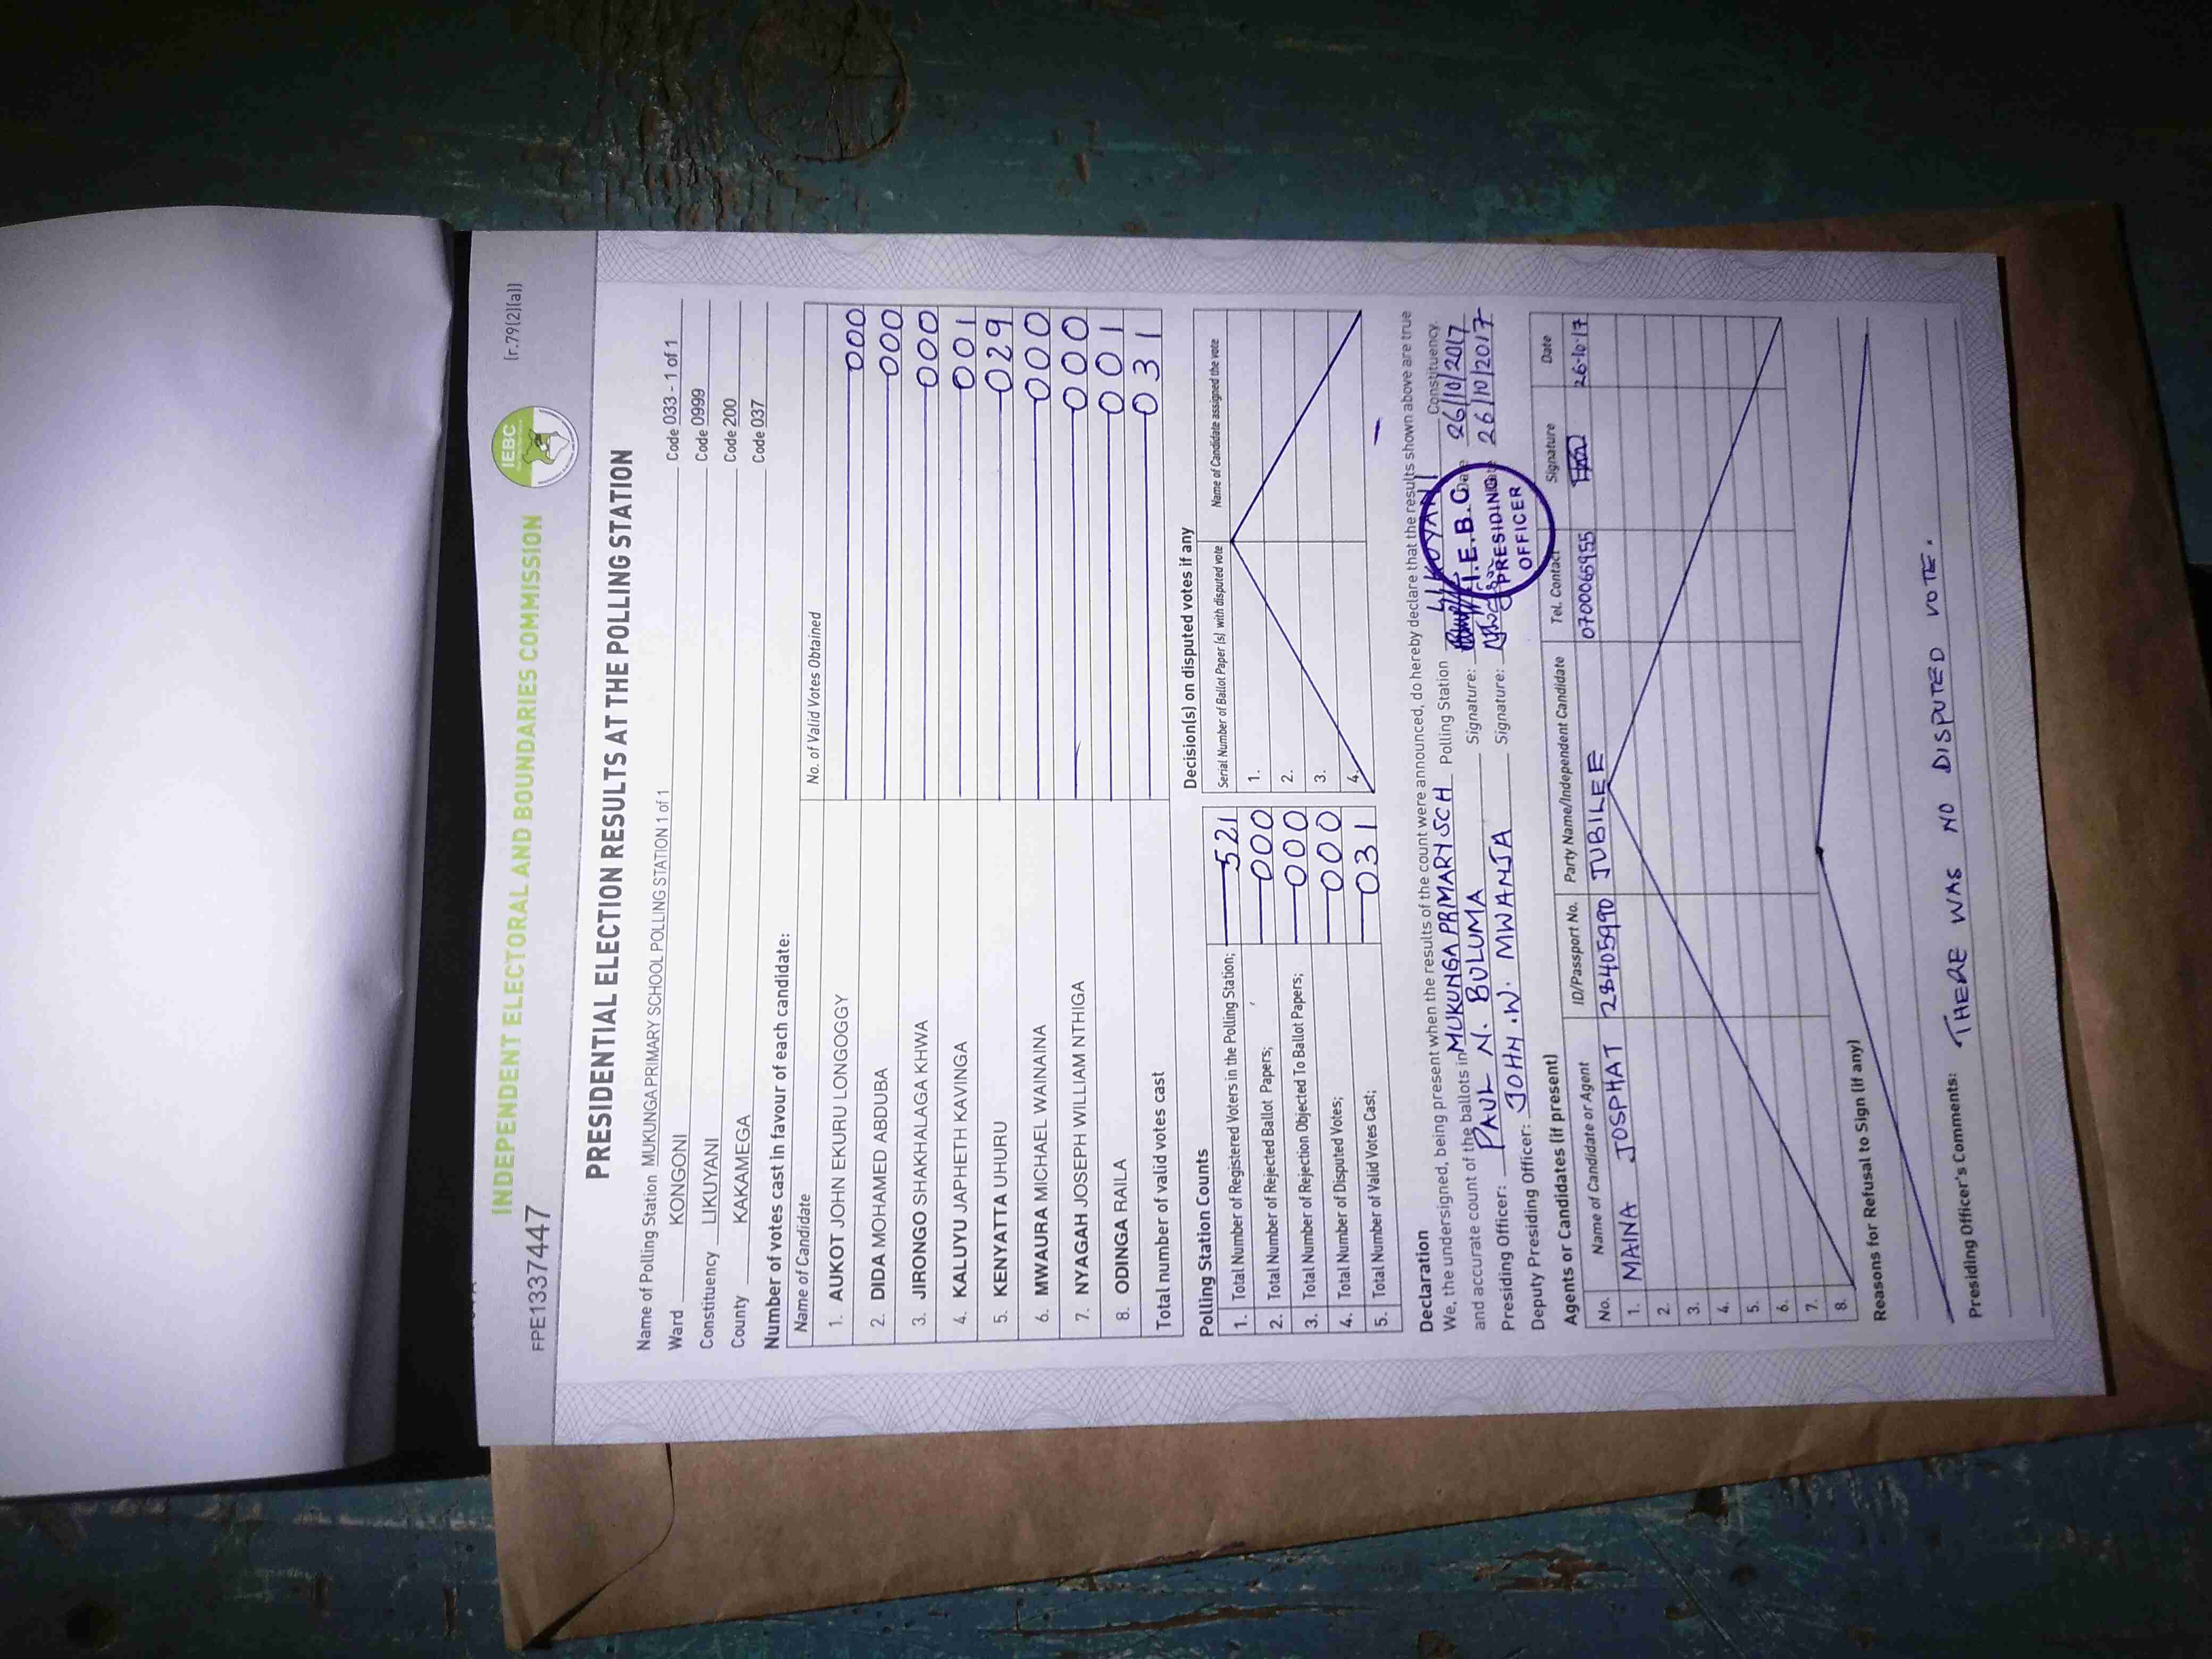 INDEPENDENT ELECTORAL AND BOUNDARIES COMMISSION
IEBC
(r.79(2)(a))
FPE1337447
PRESIDENTIAL ELECTION RESULTS AT THE POLLING STATION
Name of Polling Station MUKUNGA PRIMARY SCHOOL POLLING STATION 1 of 1 Code 033 - 1 of 1
Ward KONGONI Code 0999
Constituency LIKUYANI Code 200
County KAKAMEGA Code 037
Number of votes cast in favour of each candidate:
Name of Candidate No. of Valid Votes Obtained
1. AUKOT JOHN EKURU LONGOGGY 000
2. DIDA MOHAMED ABDUBA 000
3. JIRONGO SHAKHALAGA KHWA 000
4. KALUYU JAPHETH KAVINGA 001
5. KENYATTA UHURU 029
6. MWAURA MICHAEL WAINAINA 000
7. NYAGAH JOSEPH WILLIAM NTHIGA 000
8. ODINGA RAILA 001
Total number of valid votes cast 031
Polling Station Counts
1. Total Number of Registered Voters in the Polling Station; 521
2. Total Number of Rejected Ballot Papers; 000
3. Total Number of Rejection Objected To Ballot Papers; 000
4. Total Number of Disputed Votes; 000
5. Total Number of Valid Votes Cast; 031
Decision(s) on disputed votes if any
Serial Number of Ballot Paper (s) with disputed vote Name of Candidate assigned the vote
1.
2.
3.
4.
Declaration
We, the undersigned, being present when the results of the count were announced, do hereby declare that the results shown above are true
and accurate count of the ballots in MUKUNGA PRIMARY SCH Polling Station LIKUYANI Constituency.
Presiding Officer: PAUL N. BULUMA Signature: Date 26/10/2017
Deputy Presiding Officer: JOHN .W. MWANJA Signature: 26/10/2017
I.E.B.C
PRESIDING
OFFICER
Agents or Candidates (if present)
No. Name of Candidate or Agent ID/Passport No. Party Name/Independent Candidate Tel. Contact Signature Date
1. MAINA JOSPHAT 28405990 JUBILEE 0700065955 26-10-17
2.
3.
4.
5.
6.
7.
8.
Reasons for Refusal to Sign (if any)
Presiding Officer's Comments: THERE WAS NO DISPUTED VOTE.